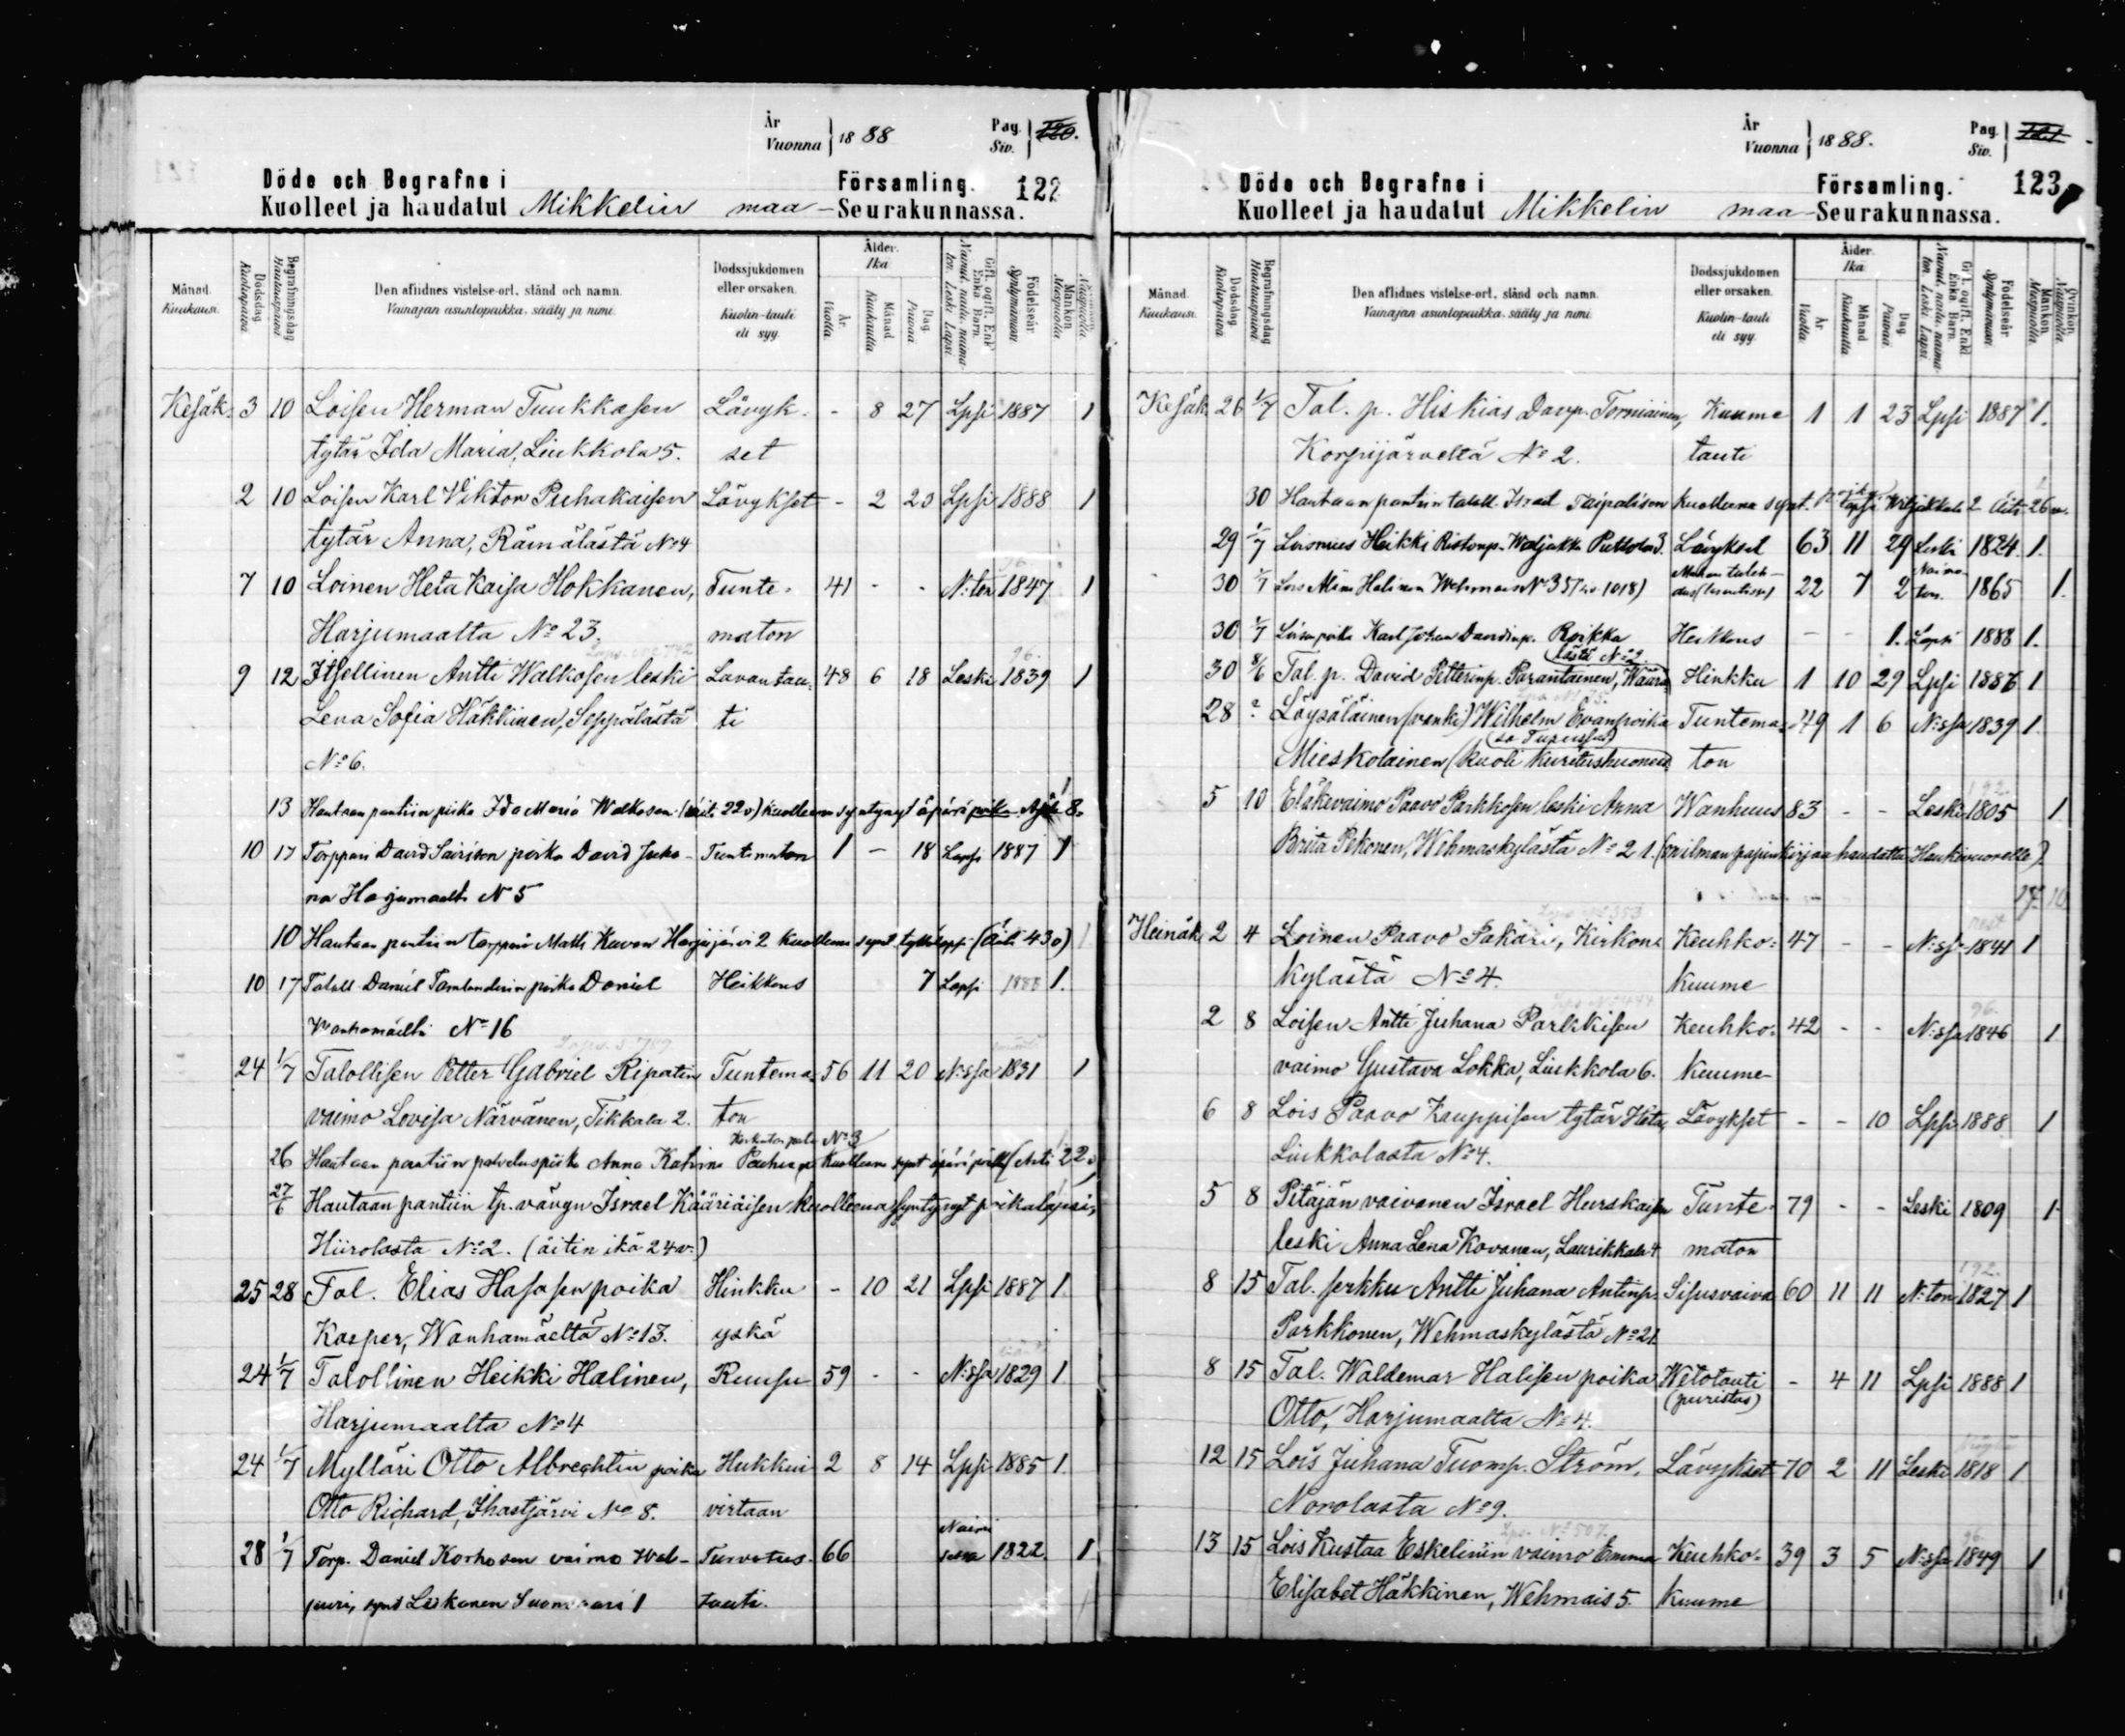 År
Vuonna } 1888
Pag.
Siv. } 120.
Döde och Begrafne i Församling. 122
Kuolleet ja haudatut Mikkelin maa-Seurakunnassa.
Månad. Kuukausi.
Dödsdag. Kuolinpäivä.
Begrafningsdag. Hautauspäivä.
Den aflidnes vistelse-ort, stånd och namn.
Vainajan asuntopaikka, sääty ja nimi.
Dödssjukdomen
eller orsaken.
Kuolin-tauti
eli syy.
Ålder.
Ikä
År. Vuotta.
Månad. Kuukautta
Dag. Päivää
Födelseår. Syntymävuosi
Mankön. Miespuolia.
Kesäk. 3 10 Loisen Herman Tuukkasen Lävyk- - 8 27 Lpsi 1887 1
tytär Ida Maria, Liukkola 5. set
2 10 Loisen Karl Viktor Puhakaisen Lävykset - 2 23 Lpsi 1888 1
tytär Anna, Rämälästä No 4
7 10 Loinen Heta Kaisa Hokkanen, Tunte- 41 - - N:ton 1847 1
Harjumaalta No 23. maton
9 12 Itsellinen Antti Walkosen leski Lavantau- 48 6 18 Leski 1839 1
Lena Sofia Häkkinen, Seppälästä ti
No 6.
13 Hautaan pantiin piika Ida Maria Walkosen (äiti 22 v) kuolleena syntynyt äpärä poika 8.
10 17 Torppari David Sairisen poika David Juha- Tuntematon 1 - 18 Lapsi 1887 1
na Harjumaalta N 5
10 Hautaan pantiin torppari Matti Kuvon Harjujärvi 2 kuolleena synt tyttölapsi (Äiti 43 v)
10 17 Taloll. Daniel Tamlanderin poika Daniel Heikkous 7 Lapsi 1888 1.
Wanhamäelta No 16
24 1/7 Talollisen Petter Gabriel Ripatin Tuntema- 56 11 20 N:ssa 1831 1
vaimo Lovisa Närvänen, Tikkala 2. ton
26 Hautaan pantiin palveluspiika Anna Katrina No 3 kuolleena synt äpärä poika (Äiti 22 v)
27/6 Hautaan pantiin tp. vävyn Israel Kääriäisen kuolleena syntynyt poikalapsi,
Hiirolasta No 2. (äitin ikä 24 v.)
25 28 Tal. Elias Hasasen poika Hinkku - 10 21 Lpsi 1887 1
Kasper, Wanhamäeltä No 13. yskä
24 1/7 Talollinen Heikki Halinen, Ruusu 59 - - N:ssa 1829 1
Harjumaalta No 4
24 1/7 Mylläri Otto Albrechtin poika Hukkui 2 8 14 Lpsi 1885 1.
Otto Richard, Ihastjärvi No 8. virtaan
28 1/7 Torp. Daniel Korhosen vaimo Wal- Turvotus- 66 Naimisissa 1822 1
puri, synt Leskanen Suonsaari 1 tauti.
År
Vuonna } 1888.
Pag.
Siv. } 121
Döde och Begrafne i Församling. 123
Kuolleet ja haudatut Mikkelin maa-Seurakunnassa.
Månad. Kuukausi.
Dödsdag. Kuolinpäivä.
Begrafningsdag. Hautauspäivä.
Den aflidnes vistelse-ort, stånd och namn.
Vainajan asuntopaikka, sääty ja nimi.
Dödssjukdomen
eller orsaken.
Kuolin-tauti
eli syy.
Ålder.
Ikä
År. Vuotta.
Månad. Kuukautta
Dag. Päivää
Födelseår. Syntymävuosi
Qvinkön. Naispuolia.
Mankön. Miespuolia.
Kesäk. 26 1/7 Tal. p. Hiskias Davp. Torniainen, Kuume 1 1 23 Lpsi 1887 1.
Korpijärveltä No 2. tauti
30 Hautaan pantiin taloll. Israel Taipalisen kuolleena synt. lapsi 2 Äiti 26 v.
29 1/7 Loismies Heikki Ristonp. Waljakka Puttola 3. Lävykset 63 11 29 Leski 1824 1.
30 1/7 Lois Miina Halinen Wehmais No 35 22 7 2 Naimaton. 1865 1.
30 1/7 Loisen poika Karl Johan Davidinp. Roikka Heikkous - - 1. Lapsi 1888 1.
30 8/6 Tal. p. David Petterinp. Parantainen, Wäärälästä No 2 Hinkku 1 10 29 Lpsi 1886 1
28 ? Löysäläinen (renki) Wilhelm Evanpoika Tuntema- 49 1 6 N:ssa 1839 1.
Mieskolainen (kuoli kuritushuoneessa Turussa) ton
5 10 Eläkevaimo Paavo Parkkosen leski Anna Wanhuus 83 - - Leski 1805 1
Brita Pekonen, Wehmaskylästä No 21. (ilman papinkirjaa haudattu Haukivuorelle)
Heinäk. 2 4 Loinen Paavo Sakari, Kirkon- Keuhko- 47 - - N:ssa 1841 1
kylästä No 4. kuume
2 8 Loisen Antti Juhana Parkkisen Keuhko- 42 - - N:ssa 1846 1
vaimo Gustava Lokka, Liukkola 6. kuume
6 8 Lois Paavo Kauppisen tytär Heta, Lävykset - - 10 Lpsi 1888 1
Liukkolasta No 4.
5 8 Pitäjän vaivanen Israel Hurskaisen Tunte- 79 - - Leski 1809 1
leski Anna Lena Kovanen, Laurikkala 4. maton
8 15 Tal. serkku Antti Juhana Antinp. Sisusvaiva 60 11 11 N:ton 1827 1
Parkkonen, Wehmaskylästä No 21.
8 15 Tal. Waldemar Halisen poika Wetotauti (puristus) - 4 11 Lpsi 1888 1
Otto, Harjumaalta No 4.
12 15 Lois Juhana Tuomp. Ström, Lävykset 70 2 11 Leski 1818 1
Norolasta No 9.
13 15 Lois Kustaa Eskelinin vaimo Emma Keuhko- 39 3 5 N:ssa 1849 1
Elisabet Häkkinen, Wehmais 5. kuume